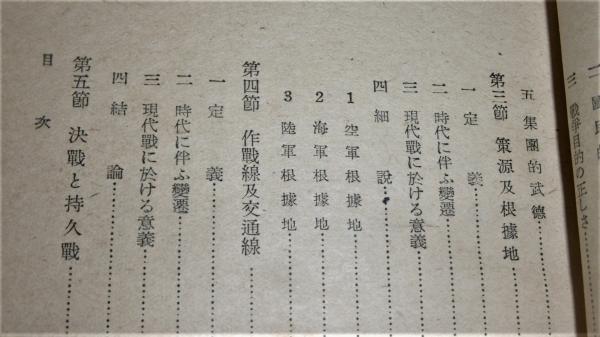 三 戰爭目的の正しさ
五 集團的武德
第三節 策源及根據地
一 定義
二 時代に伴ふ變遷
三 現代戰に於ける意義
四 細說
1 空軍根據地
2 海軍根據地
3 陸軍根據地
第四節 作戰線及交通線
一 定義
二 時代に伴ふ變遷
三 現代戰に於ける意義
四 結論
第五節 決戰と持久戰
目次